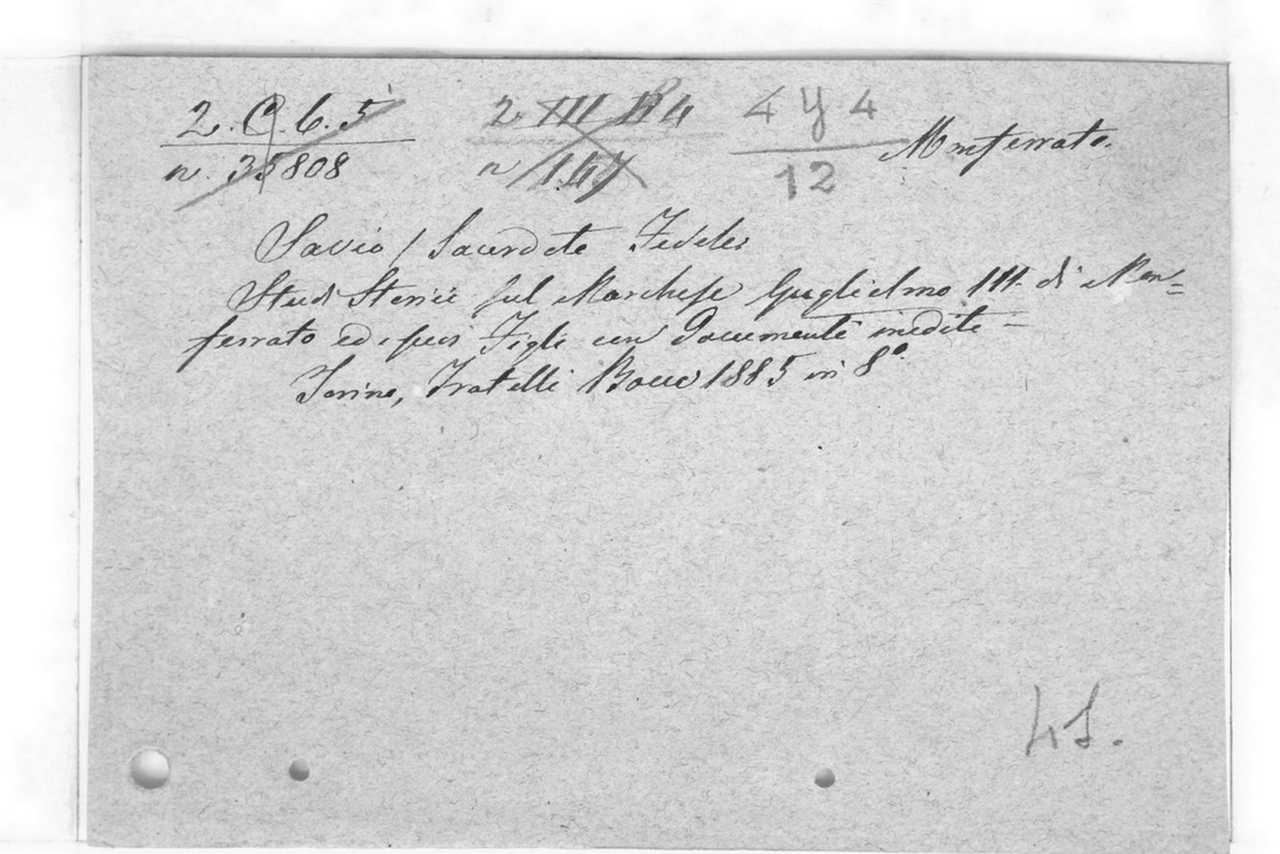 2. C. 6. 5
n. 35808
2 III B 4
n 147
4 Y 4
12
Monferrato.
Savio / Sacerdote Fedele
Studi Storici sul Marchese Guglielmo III. di Mon=
ferrato ed i suoi Figli con Documenti inediti –
Torino, Fratelli Bocca 1885 in 8°.